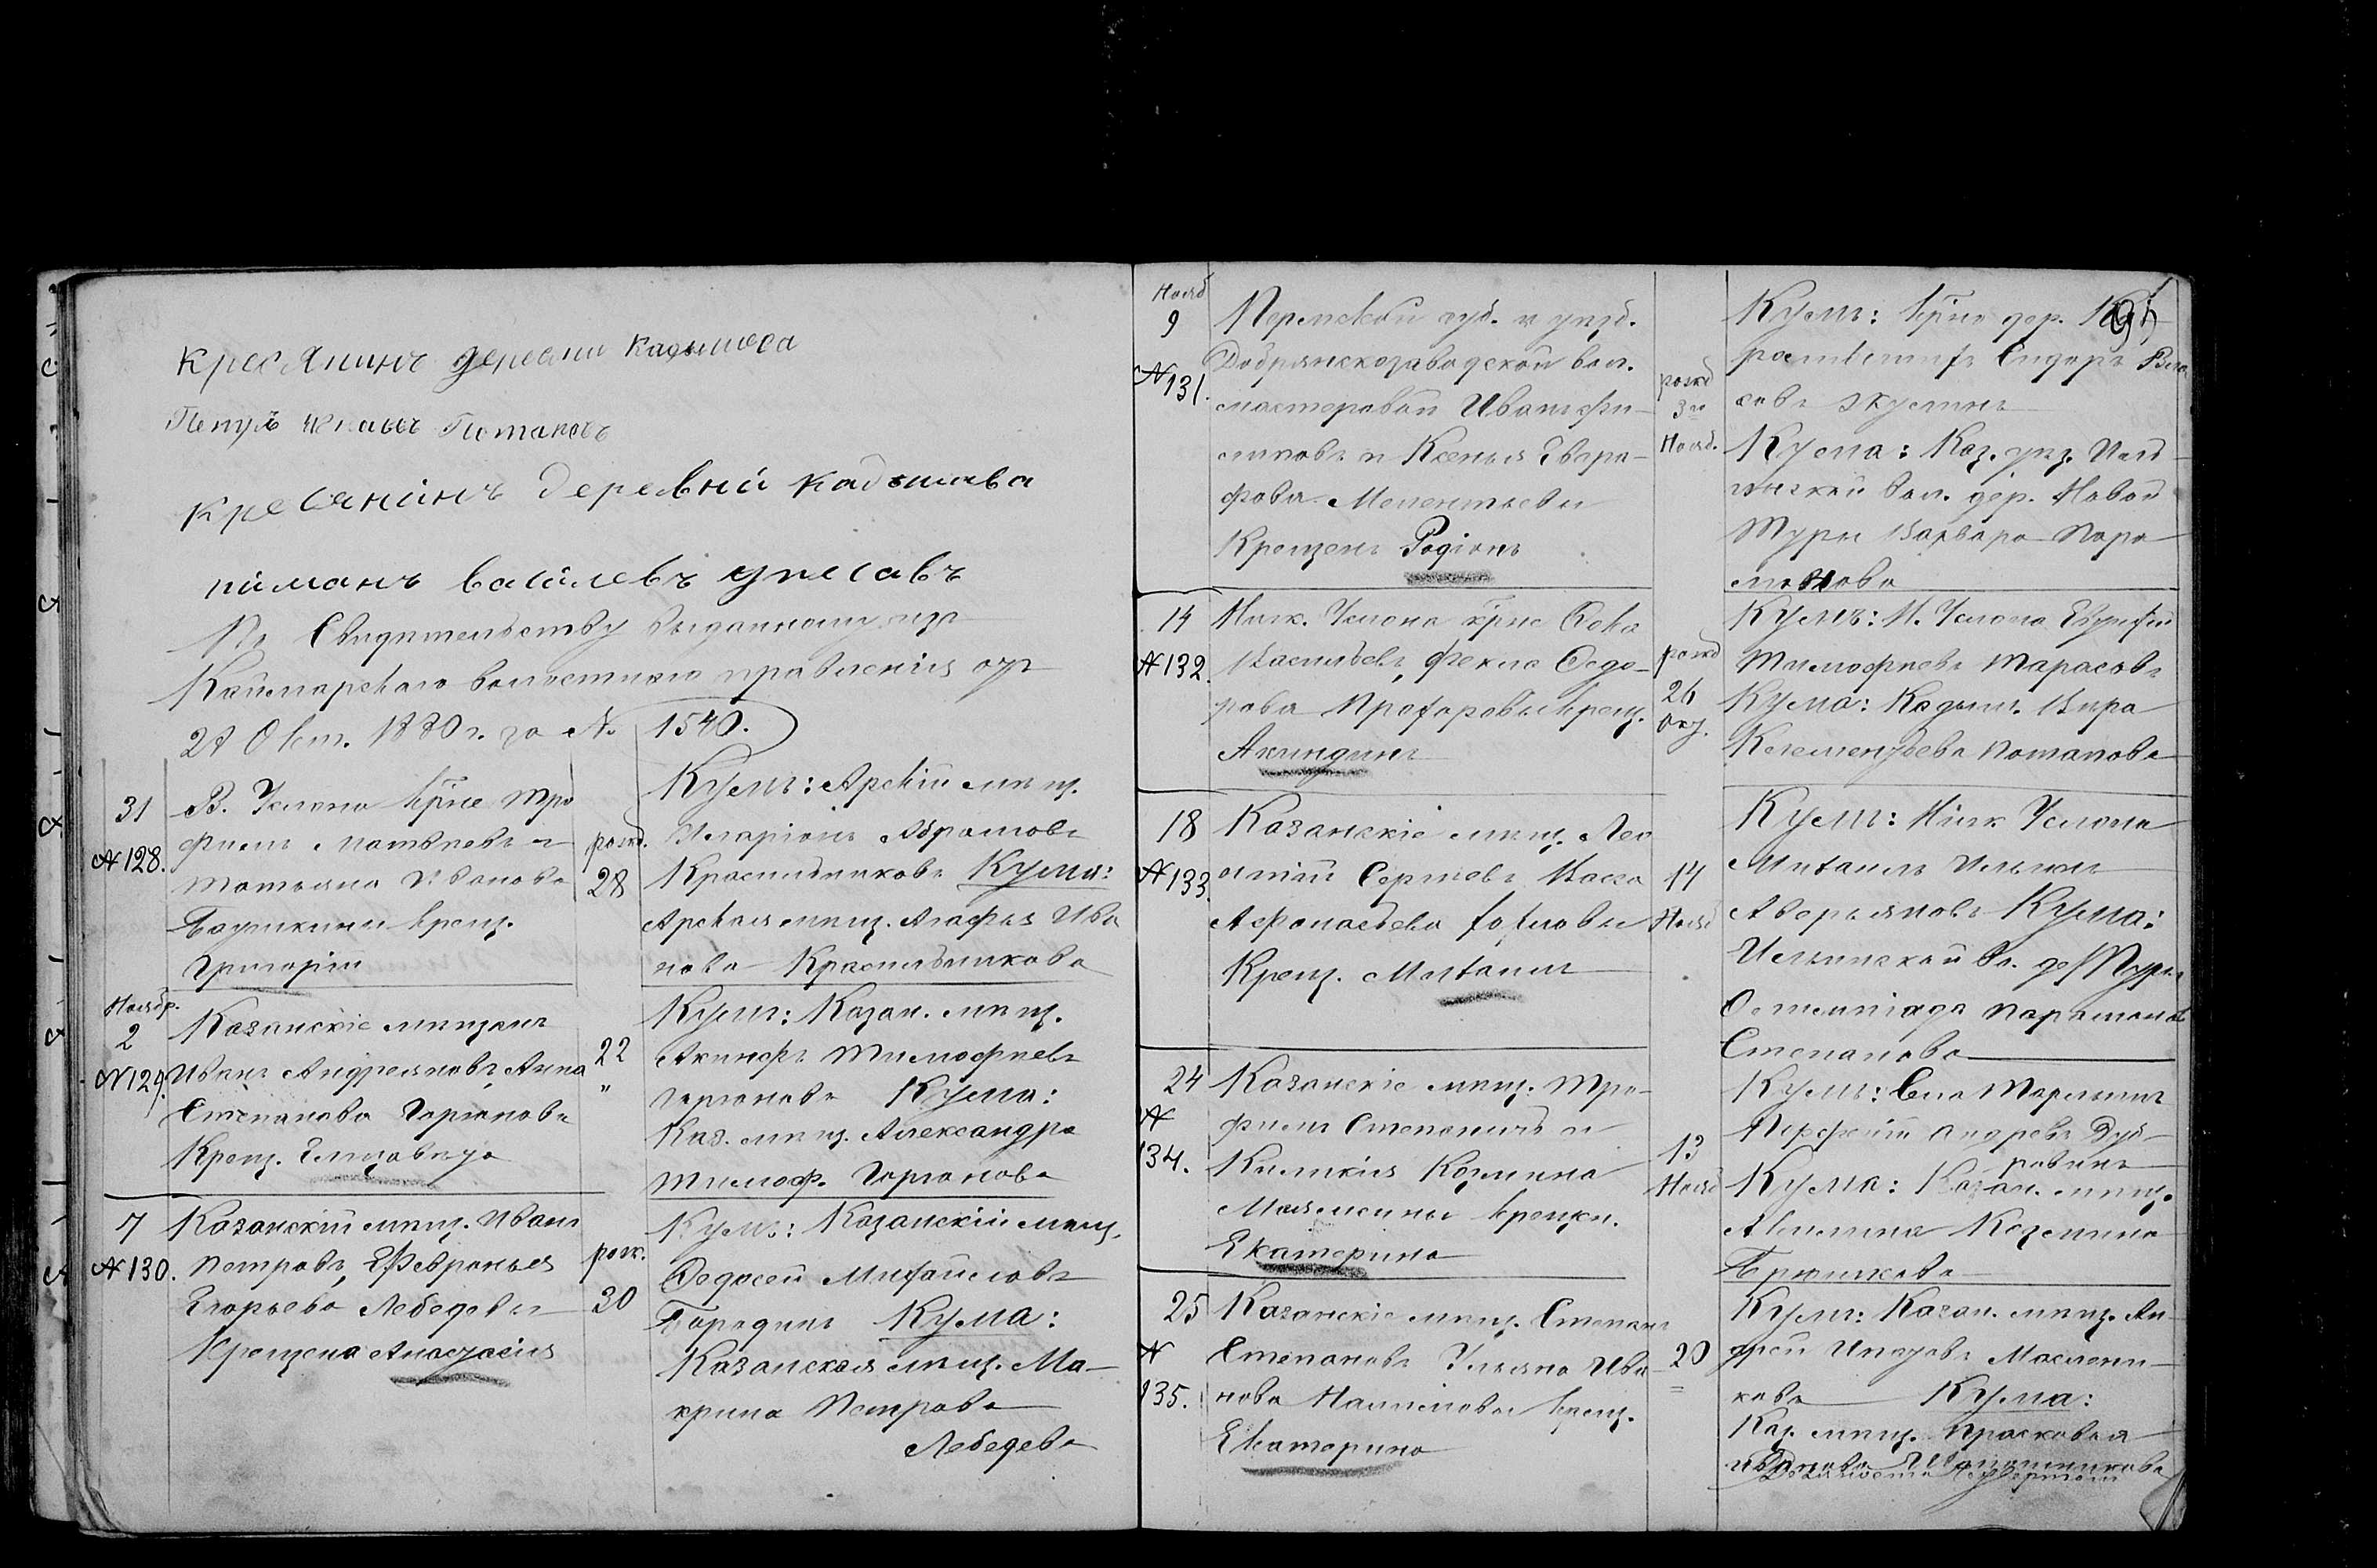 Кресянинъ деревни Кадышева
Потаповъ
кресянинъ деревни кадышева
пиманъ василевъ
По Свидѣтельству выданному изъ
Каймарскаго волостнаго правленія отъ
28 Окт. 1880 г. за № 1540.
31
№ 128.
В. Услона крне Тро
фимъ Матвѣевъ и
Татьяна Иванова
крещ.
Григорій
рожд.
28
Кумъ: Арскій мѣщ.
Иларіонъ Абрамовъ
Красильниковъ Кума:
Арская мѣщ. Агафья Ива
нова Красильникова
Ноябр.
2
№ 129.
Казанскіе мѣщане
Иванъ Андреяновъ, Анна
Степанова Горюновы
Крещ. Елизавета
22
"
Кумъ: Казан. мѣщ.
Акинфъ Тимофѣевъ
Горюновъ Кума:
Каз. мѣщ. Александра
Тимоф. Горюнова
7
№ 130.
Казанскій мѣщ. Иванъ
Петровъ, Февронья
Егорьева Лебедевы
Крещена Анастасія
рож.
30
Кумъ: Казанскій мѣщ.
Ѳедосей Михайловъ
Бородинъ Кума:
Казанская мѣщ. Ма-
крина Петрова
Лебедева
Нояб
9
№ 131.
Пермской губ. и уѣзд.
Добрянскозаводской вол.
мастеровой Иванъ Фи-
липовъ и Ксенья Евгра-
фова Мелентьевы
Крещенъ Родіонъ
рожд
3го
Нояб.
Кумъ: крне дер.
Сидоръ Вла
совъ
Кума: Каз. уѣз.
вол. дер. Новой
Туры Варвара Пара
монова
14
№ 132.
Ниж. Услона крне Ѳока
Васильевъ, Фекла Ѳедо-
рова Прохоровы крещ.
Акиндинъ
рожд
26
Окт.
Кумъ: Н. Услона Евтифій
Тимофѣевъ Тарасовъ
Кума: Кадыш. Вѣра
Клементьева Потапова
18
№ 133.
Казанскіе мѣщ. Лео
нтій Сергѣевъ, Васса
Афонасьева Хохловы
Крещ. Михаилъ
14
Нояб
Кумъ: Ниж Услона
Михаилъ Ильинъ
Аверьяновъ Кума:
Ильинской вл. де. Туры
Парамонов
Степанова
24
№
134.
Казанскіе мѣщ. Тро-
фимъ Степановъ и
Киликія Козмина
крещен.
Екатерина
13
Нояб
Кумъ: Села
Перфилій Андреевъ Дуб-
ровинъ
Кума: Казан. мѣщ.
Акилина Козмина
25
№
135.
Казанскіе мѣщ. Степанъ
Степановъ Ульяна Ива
нова крещ.
Екатерина
20
=
Кумъ: Казан. мѣщ. Ан-
дрей Масленни-
ковъ Кума:
Каз. мѣщ. Прасковья
Иванова